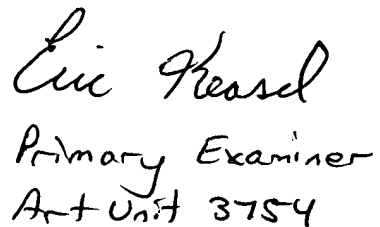 Eric Keasel
Primary Examiner
Art Unit 3754